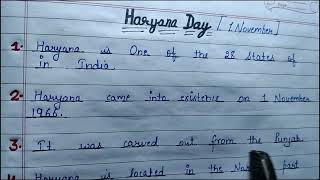 Haryana Day [1 November]
1. Haryana is One of the 28 States of
in India
2. Haryana came into existence on 1 November
1966.
3. It was carved out from the Punjab.
4. Haryana is located in the Nor part